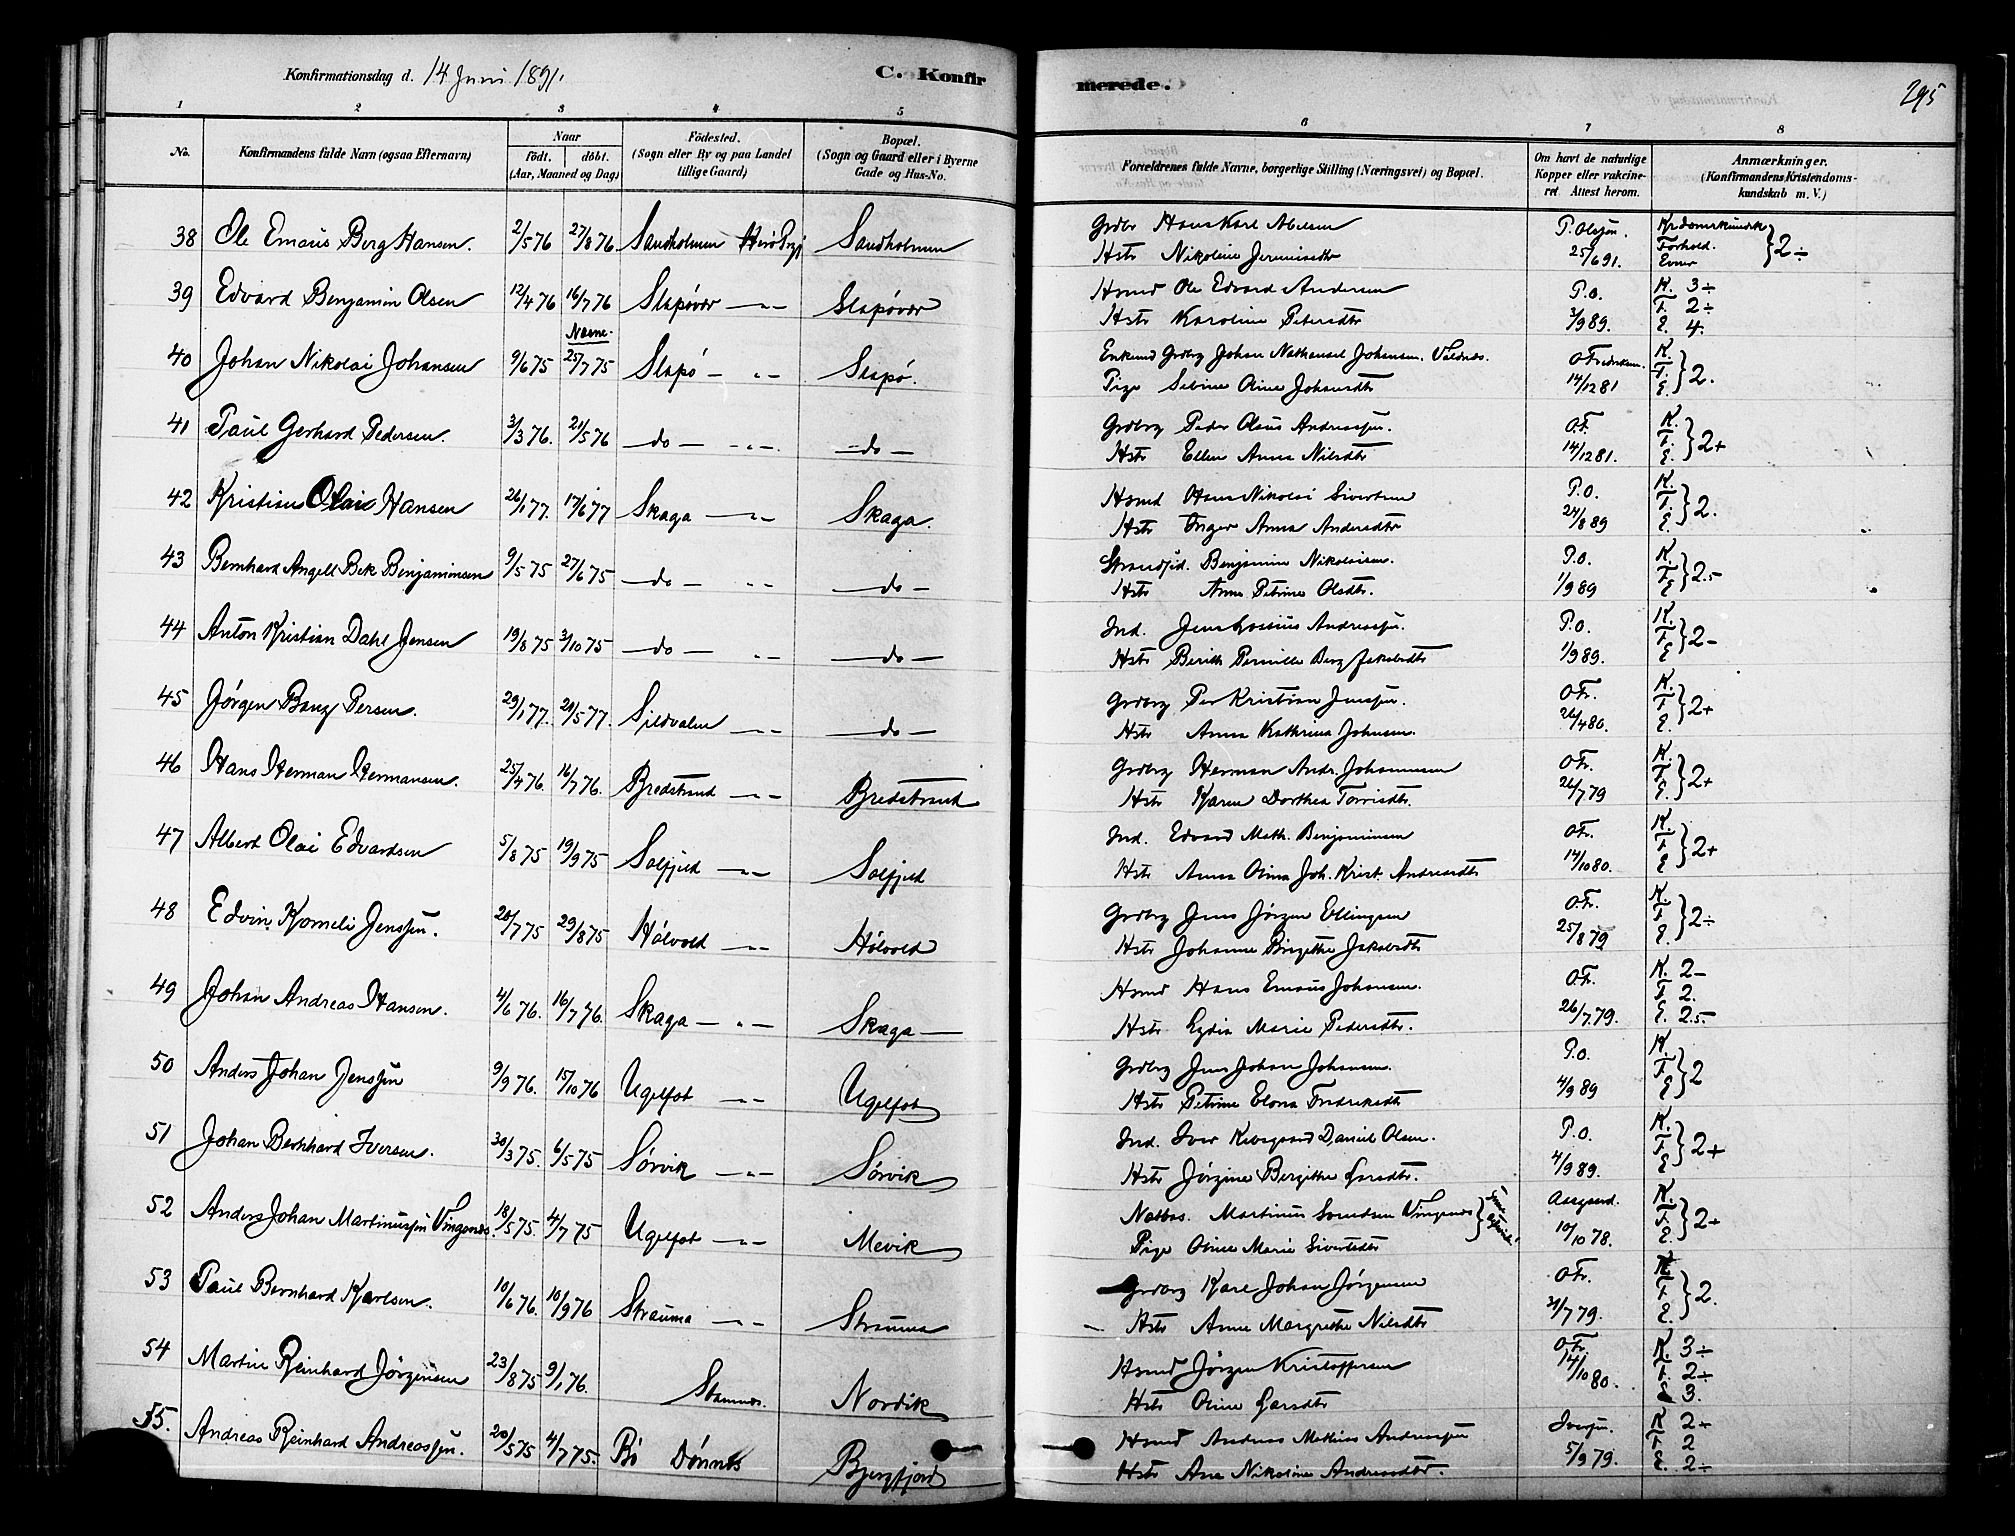 Konfirmationsdag d. 14 Juni 1891.
C. Konfir
merede.
295
1 2 3 4 5 6 7 8
No.
Konfirmandens fulde Navn (ogsaa Efternavn)
Naar
födt. döbt.
(Aar, Maaned og Dag)
Födested.
(Sogn eller By og paa Landet
tillige Gaard)
Bopæl.
(Sogn og Gaard eller i Byerne
Gade og Hus-No.
Forældrenes fulde Navne, borgerlige Stilling (Næringsvei) og Bopæl.
Om havt de naturlige
Kopper eller vakcine-
ret Attest herom.
Anmærkninger.
(Konfirmandens Kristendoms-
kundskab m. V.)
38 Ole Emaus Berg Hansen. 2/5 76 27/8 76 Sandholmen Sandholmen
Grdbr Hans Karl Abelsen P. Olsen.
Hstr Nikoline 25/6 91. Forhold. Evner } 2 ÷
39 Edvard Benjamin Olsen 12/4 76 16/7 76 Slapövær — " — Slapövær
Hsmd Ole Edvard Andersen P.O. K. 3 ÷
Hstr Karoline Petersdtr 3/9 89. F. 2 ÷
E. 4.
Navne-
40 Johan Nikolai Johansen 9/6 75 25/7 75 Slapö — " — Slapö.
Enkemd Grdbrg Johan Nathanael Johansen. Valdnes. O Fredriksen.
Pige Sebine Oline Johansdtr 14/12 81 K. F. E. } 2.
41 Paul Gerhard Pedersen. 3/3 76. 21/5 76 — do — — " — — do —
Grdbrg Peder Olaus Andreassen. O.F.
Hstr Ellen Anna Nilsdtr 14/12 81. K. F. E. } 2+
42 Kristian Olai Hansen 26/1 77. 17/6 77 Skaga — " — Skaga.
Hsmd Hans Nikolai Sivertsen P.O.
Hstr Inger Anna Andersdtr 24/8 89 K. F. E. } 2.
43 Bernhard Angell Bek Benjaminsen 9/5 75 27/6 75 — do — — " — — do —
Strandsid. Benjamin Nikolaisen. P.O.
Hstr Anne Petrine Olsdtr. 1/9 89 K. F. E. } 2.5
44 Anton Kristian Dahl Jensen 19/8 75 3/10 75 — do — " — do —
Ind. Jens Lossius Andreassen. P.O.
Hstr Berith Pernille Berg Jakobsdtr 1/9 89. K. F. E } 2 –
45 Jörgen Bang Persen. 29/1 77. 20/5 77. Sildvalen — " — — do —
Grdbrg Per Kristian Jenssen. O Fr.
Hstr Anna Kathrina Johnsen. 26/4 80. K. F. E. } 2+
46 Hans Herman Hermansen. 25/4 76. 16/7 76. Bredstrand — " — Bredstrand
Grdbrg Herman Andr. Johannesen O Fr.
Hstr Karen Dorthea Torrisdtr. 26/7 79 K. F. E. } 2+
47 Albert Olai Edvardsen 5/8 75 19/9 75 Solfjeld — " — Solfjeld
Ind. Edvard Math. Benjaminsen O Fr.
Hstr Anna Olina Joh. Krist. Andreasdtr 14/10 80. K. F. E. } 2+
48 Edvin Korneli Jenssen. 20/7 75 29/8 75 Hölvold — " — Hölvold
Grdbrg Jens Jörgen Ellingsen O Fr.
Hstr Johanne Birgitte Jakobsdtr 25/8 79 K. F. E. } 2 ÷
49 Johan Andreas Hansen. 4/6 76. 16/7 76. Skaga — " — Skaga —
Hsmd Hans Emaus Johansen. O Fr. K. 2 –
Hstr Lydia Marie Pedersdtr. 26/7 79. F. 2.
E. 2.5.
50 Anders Johan Jenssen 9/9 76. 15/10 76 Ugelfot — " — Ugelfot
Grdbrg Jens Johan Johansen. P.O.
Hstr Petrine Elona Fredriksdtr 4/9 89 K. F. E } 2
51 Johan Bernhard Iversen. 30/3 75. 6/5 75 Sörvik — " — Sörvik
Ind. Iver Daniel Olsen. P.O.
Hstr Jörgine Bergitte Larsdtr. 4/9 89. K. F. E } 2+
52 Anders Johan Martinussen Vingenes. 18/5 75. 4/7 75 Ugelfot — " — Mevik
Martinus Svendsen Vingenes Aasgaard.
Pige Oline Marie Sivertsdtr 10/10 78. K. F. E. } 2+
53 Paul Bernhard Karlsen. 10/6 76. 10/9 76 Strauma — " — Strauma
Grdbrg Karl Johan Jörgensen O Fr.
Hstr Anne Margrethe Nilsdtr 31/7 79. K. F. E. } 2.
54 Martin Reinhard Jörgensen 23/8 75 9/1 76. Stamnes. Nordvik
Hsmd Jörgen Kristoffersen O Fr. K. 3 ÷
Hstr Oline Larsdtr 14/10 80. F. 2 ÷
E 3.
55. Andreas Reinhard Andreassen. 20/5 75 4/7 75. Bö Dönnes Bjergfjord
Hsmd Andreas Mathias Andreassen Iversen. K 2 ÷
Hstr Ane Nikoline Andreasdtr. 5/9 79. F. 2
E. 2 ÷